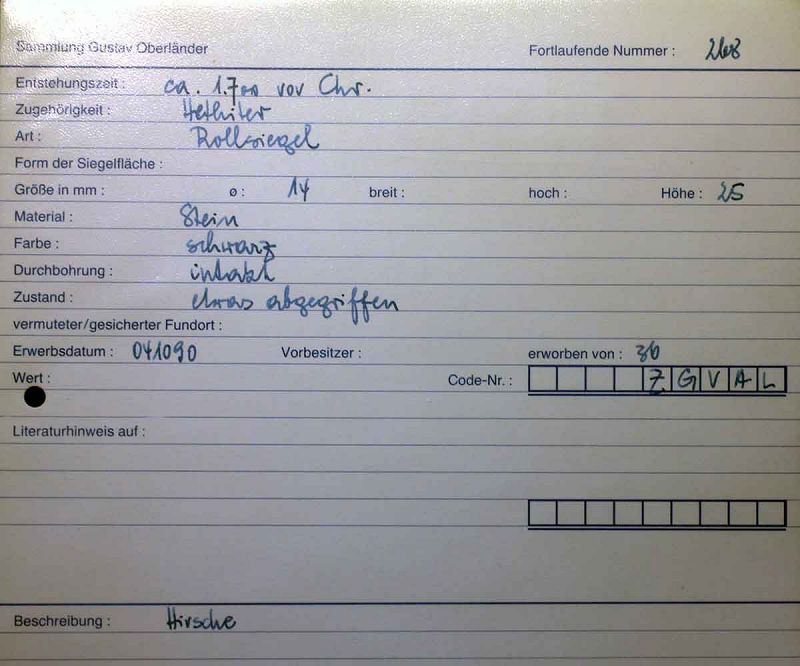 Sammlung Gustav Oberländer Fortlaufende Nummer : 268
Entstehungszeit : ca. 1.700 vor Chr.
Zugehörigkeit : Hethiter
Art : Rollsiegel
Form der Siegelfläche :
Größe in mm : ø : 14 breit : hoch : Höhe : 25
Material : Stein
Farbe : schwarz
Durchbohrung : intakt
Zustand : etwas abgegriffen
vermuteter/gesicherter Fundort :
Erwerbsdatum : 041090 Vorbesitzer : erworben von : 36
Wert : Code-Nr. : Z G V A L
Literaturhinweis auf :
Beschreibung : Hirsche